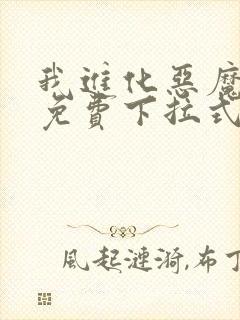 我進化惡魔
免費下拉式
風起漣漪,布丁